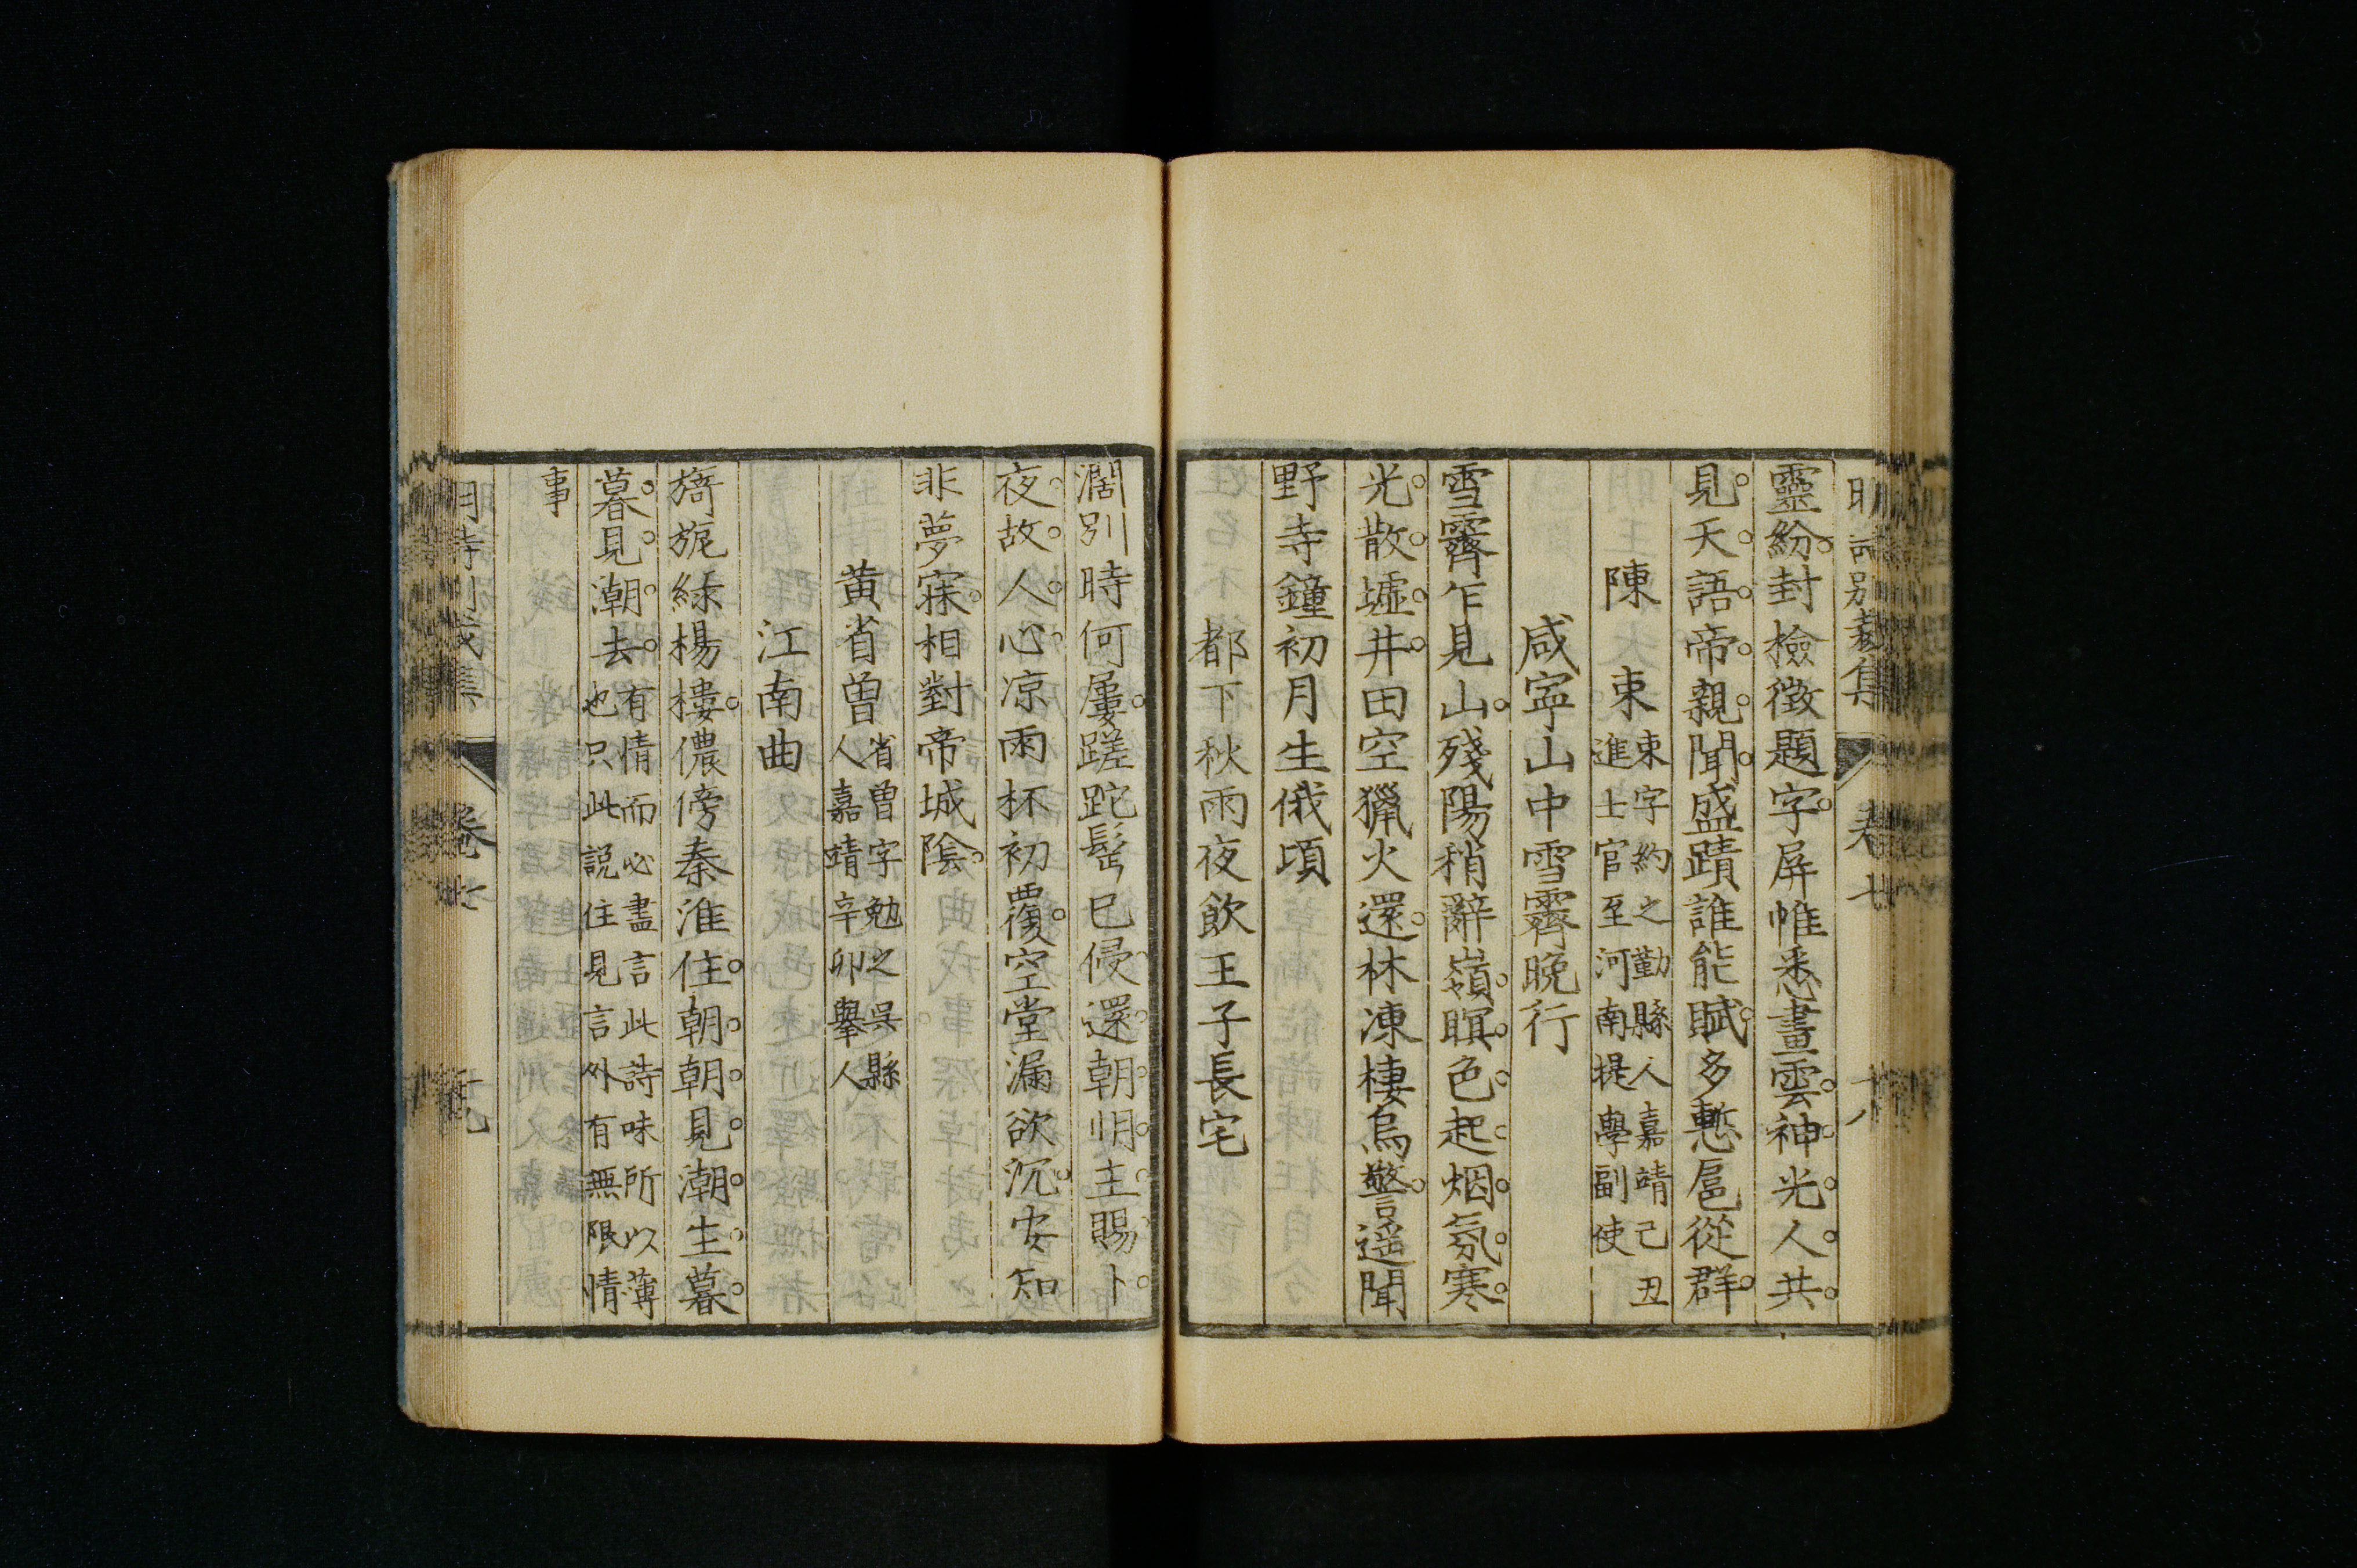 明詩別裁集 卷七 十八
靈紛封檢徵題字屏帷悉畫雲神光人共
見天語帝親聞盛蹟誰能賦多慙扈從群
陳束 束字約之勤縣人嘉靖己丑
進士官至河南提學副使
咸寧山中雪霽晚行
雪霽乍見山殘陽稍辭嶺暝色起烟氛寒
光散墟井田空獵火還林凍棲烏警遥聞
野寺鐘初月生俄頃
都下秋雨夜飲王子長宅
濶別時何屢蹉跎髩已侵還朝明主賜卜
夜故人心凉雨杯初覆空堂漏欲沉安知
非夢寐相對帝城陰
黄省曾 省曾字勉之吳縣
人嘉靖辛卯舉人
江南曲
旖旎綠楊樓儂傍秦淮住朝朝見潮生暮
暮見潮去 有情而必盡言此詩味所以薄
也只此説住見言外有無限情
事
明詩別裁集 卷七